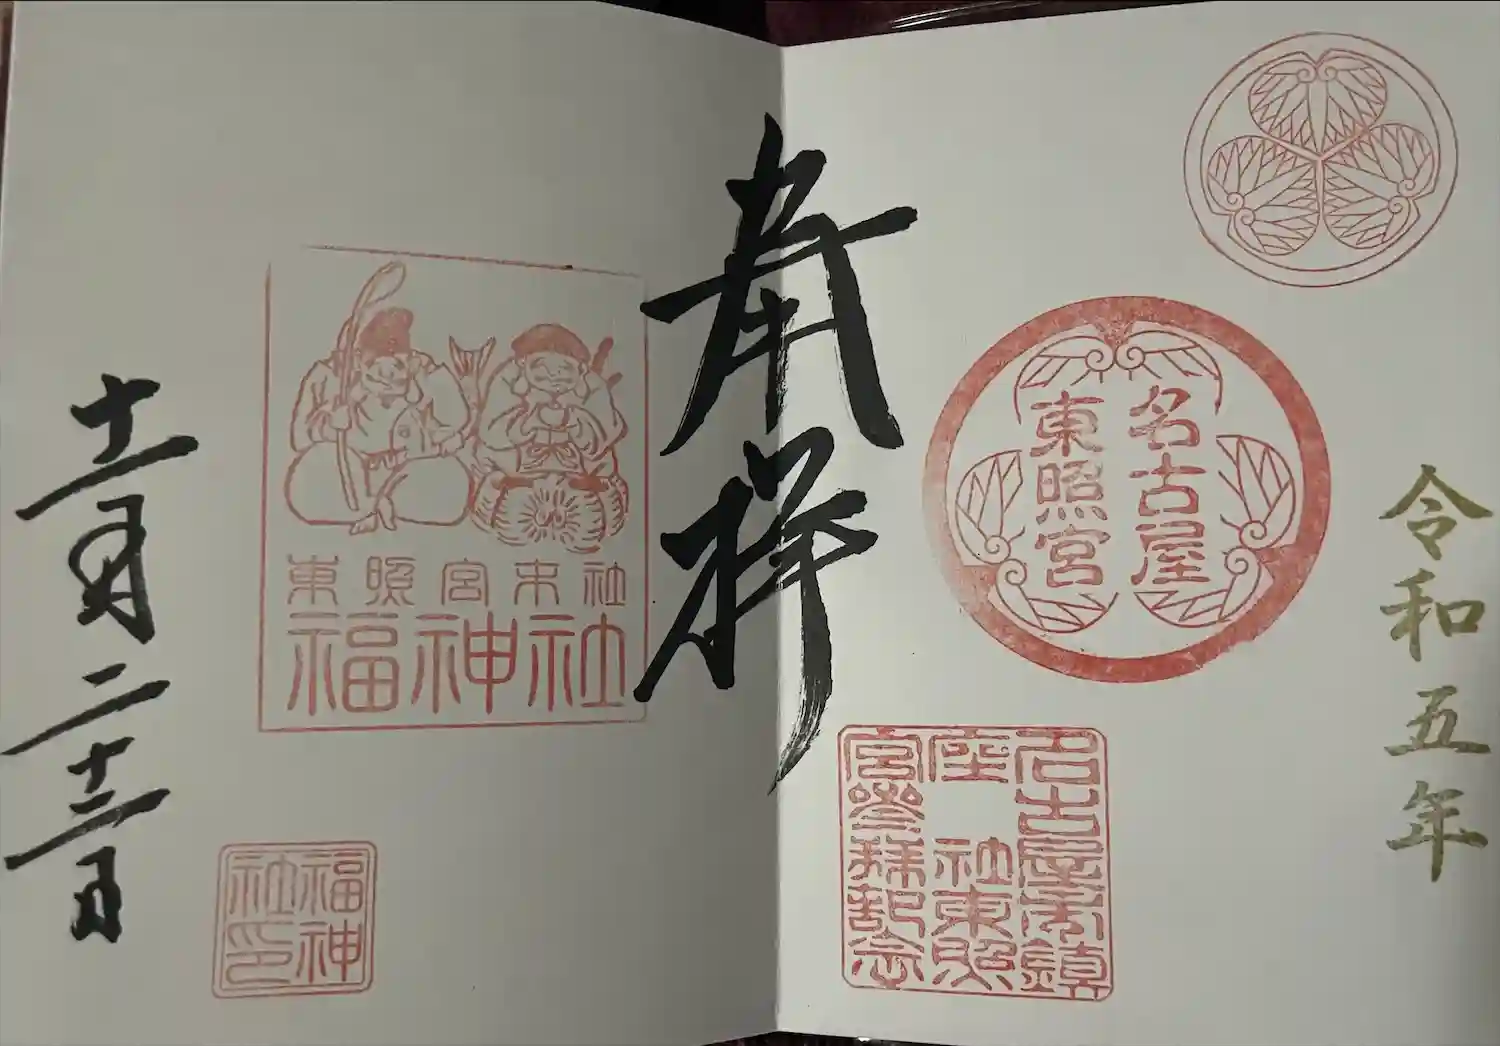 令和五年
名古屋
東照宮
名古屋市鎮
座 社東照
宮参拝記念
奉拝
東照宮末社
福神社
福神
社印
月二十三日